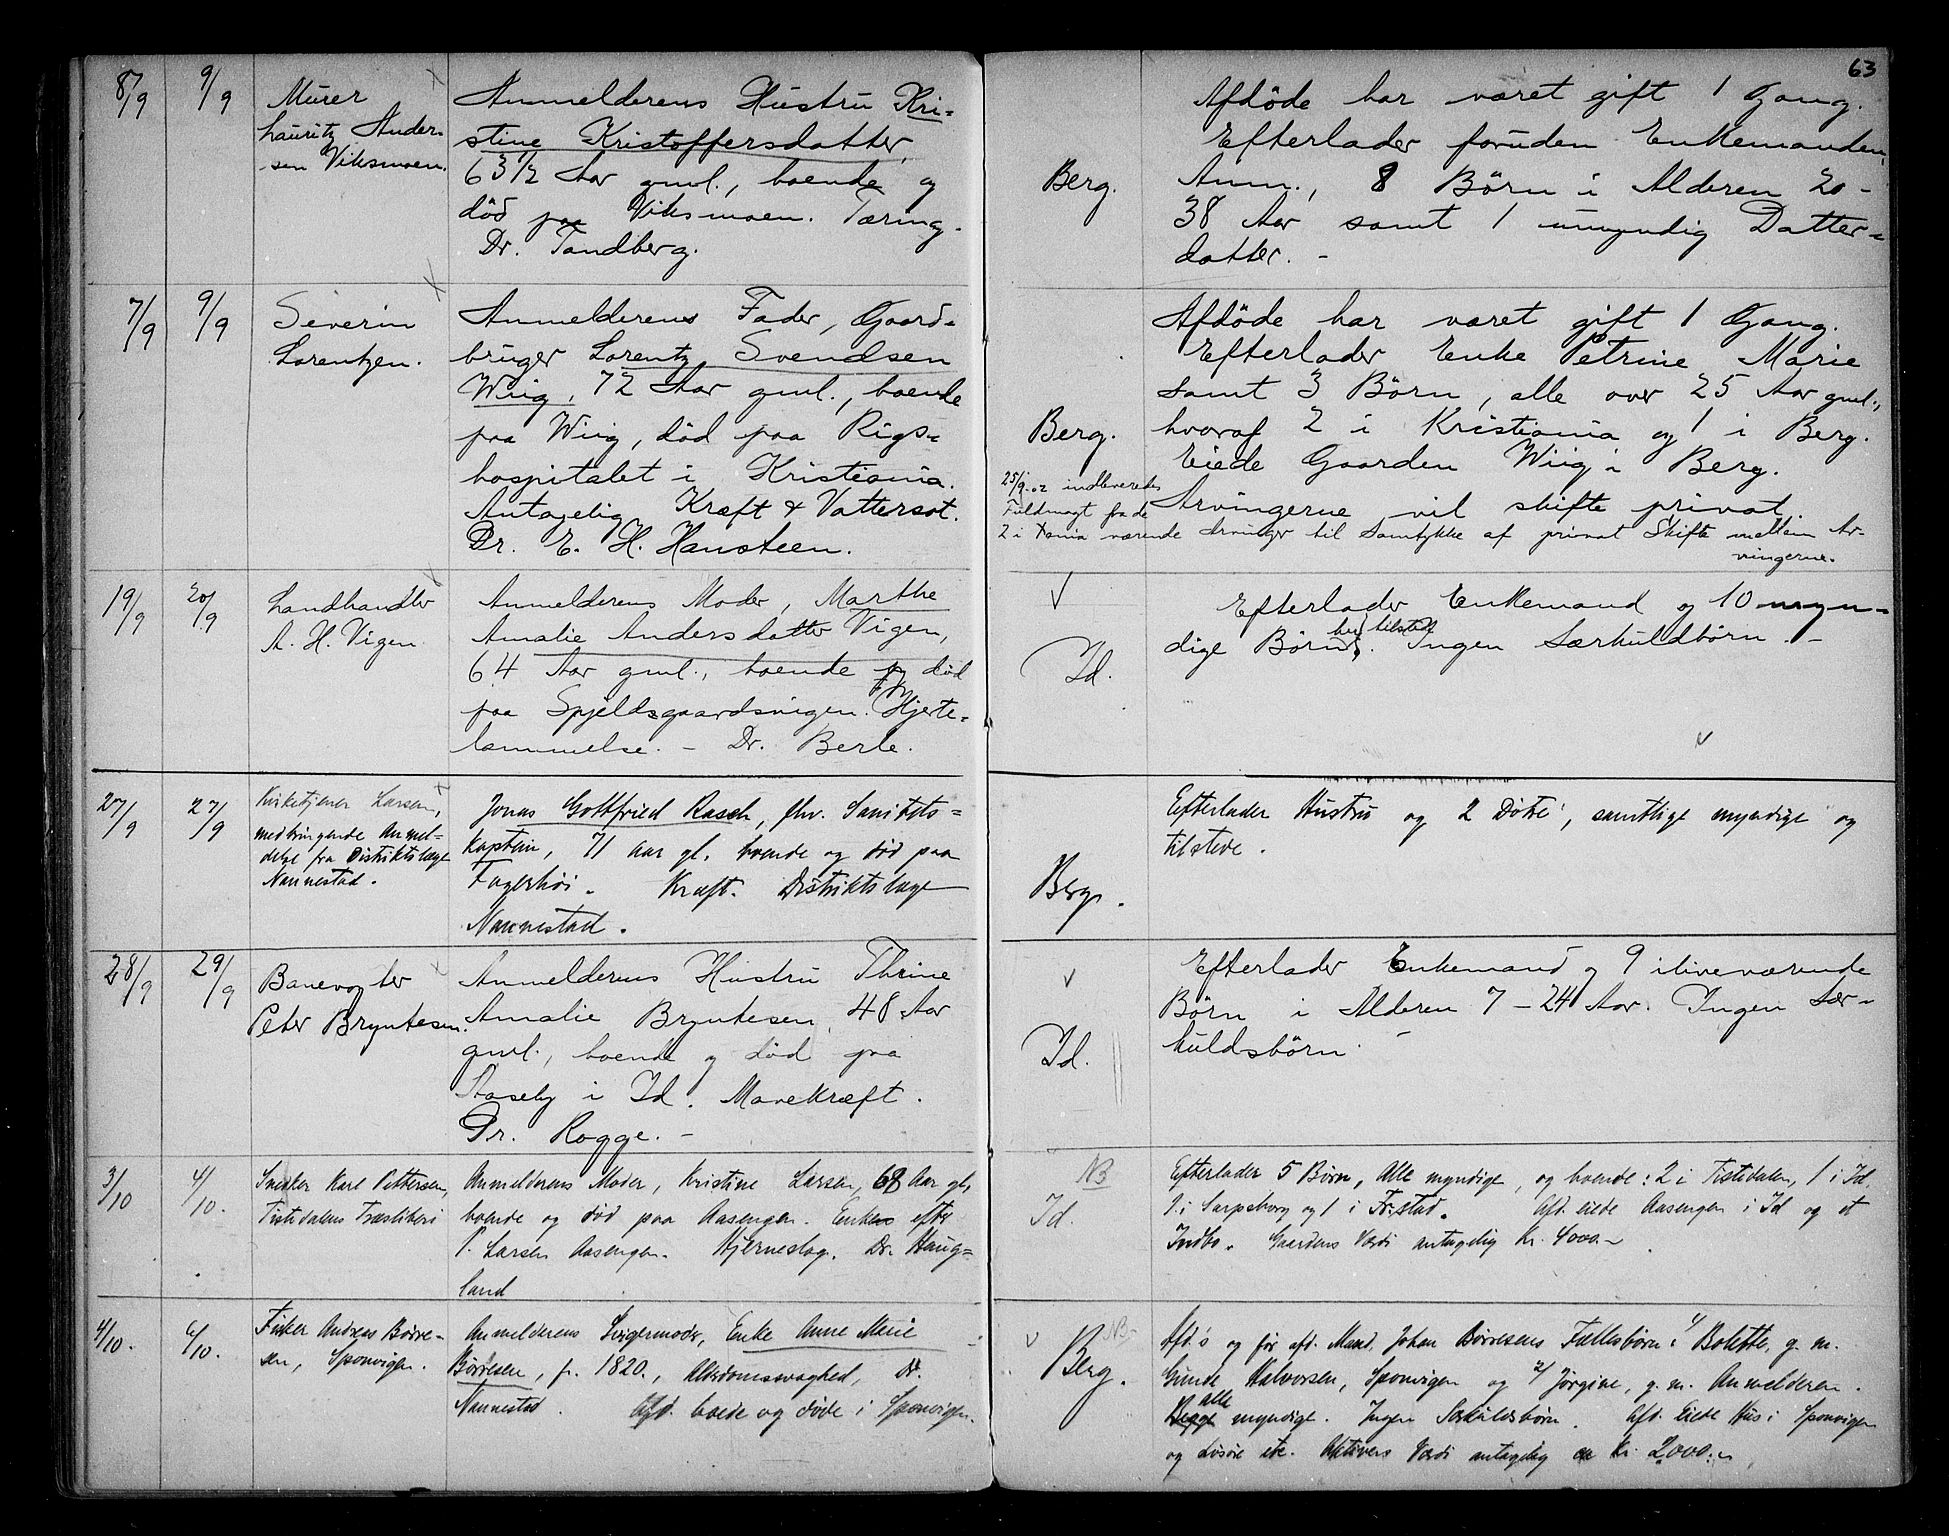 63
8/9
9/9
Murer
Lauritz Ander-
sen Viksmoen.
Anmelderens Hustru Kri-
stine Kristoffersdatter,
63 1/2 Aar gml., boende og
död paa Viksmoen. Tæring.
Dr. Tandberg.
Berg.
Afdöde har været gift 1 Gang.
Efterlader foruden Enkemanden,
Anm., 8 Börn i Alderen 20 -
38 Aar samt 1 umyndig Datter-
datter. -
7/9
9/9
Severin
Lorentzen.
Anmelderens Fader, Gaard-
bruger Lorentz Svendsen
Wiig, 72 Aar gml., boende
paa Wiig, död paa Rigs-
hospitalet i Kristiania.
Antagelig Kræft & Vattersot.
Dr. E. H. Hansteen.
Berg.
25/9.02 indleveredes
Fuldmagt fra de
2 i Xania værende Arvinger til Samtykke af privat Skifte mellem Ar-
vingerne.
Afdöde har været gift 1 Gang.
Efterlader Enke Petrine Marie
samt 3 Börn, alle over 25 Aar gml.,
hvoraf 2 i Kristiania og 1 i Berg.
Eiede Gaarden Wiig i Berg.
Arvingerne vil skifte privat.
19/9
20/9
Landhandler
A. H. Vigen
Anmelderens Moder, Marthe
Amalie Andersdatter Vigen,
64 Aar gml., boende og död
paa Spjeldsgaardsvigen. Hjerte-
lammelse. - Dr. Berle.
Id.
Efterlader Enkemand og 10 myn-
dige Börn, her tilsted. Ingen Særkuldbörn. -
27/9
27/9
Kirketjener Larsen,
medbringende Anmel-
delse fra Distriktslæge
Nannestad.
Jonas Gottfried Rasch, fhv. Sanitets-
kaptein, 71 aar gl. boende og död paa
Fagerhöi. Kræft. Distriktslæge
Nannestad.
Berg.
Efterlader Hustru og 2 Døtre, samtlige myndige og
tilstede.
28/9
29/9
Banevogter
Peter Bryntesen.
Anmelderens Hustru Thrine
Amalie Bryntesen, 48 Aar
gml., boende og död paa
Staseby i Id. Mavekræft.
Dr. Rogge. -
Id.
Efterlader Enkemand og 9 iliveværende
Börn i Alderen 7 - 24 Aar. Ingen Sær-
kuldsbörn. -
3/10
4/10.
Snekker Karl Pettersen,
Tistedalens Træsliberi
Anmelderens Moder, Kristine Larsen, 68 Aar gl.
boende og död paa Aasengen. Enke efter
P. Larsen Aasengen. Hjerneslag. Dr. Haug-
land
NB
Id.
Efterlader 5 Børn, alle myndige, og boende: 2 i Tistedalen, 1 i Id.
1 i Sarpsborg og 1 i Fr.stad. Afd. eiede Aasengen i Id og et
Indbo. Gaardens Værdi antagelig Kr. 4000.-
4/10.
6/10.
Fisker Andreas Børre-
sen, Sponvigen.
Anmelderens Svigermoder, Enke Anne Marie
Børresen, f. 1820., Alderdomssvaghed, Dr.
Nannestad. Afd. boede og døde i Sponvigen.
NB
Berg.
Afd's og før afd. Mand, Johan Børresens Fællesbørn: 1/ Bolette, g. m.
Gunde Halvorsen, Sponvigen og 2/ Jørgine, g. m. Anmelderen.
alle myndige. Ingen Særkuldsbörn. Afd. Eiede Hus i Sponvigen
og Løsøre etc. Aktivers Værdi antagelig ca Kr. 2,000.-